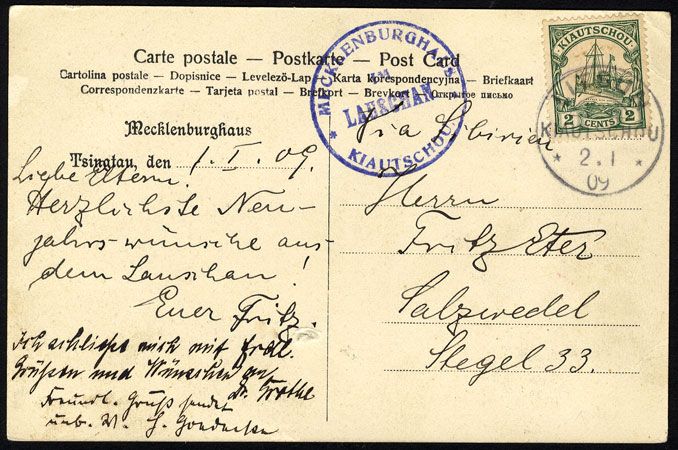 Carte postale — Postkarte — Post Card
Cartolina postale — Dopisnice — Levelező-Lap — Karta korespondencyjna — Briefkaart
Correspondenzkarte — Tarjeta postal — Brefkort — Brevkort — Открытое письмо
MECKLENBURGHAUS
LAUSCHAN
* KIAUTSCHOU *
KIAUTSCHOU
2 CENTS 2
KIAUTSCHOU
* 2.1 *
09
Mecklenburghaus
Tsingtau, den 1. I. 09.
Liebe Eltern.
Herzlichste Neu-
jahrs-wünsche aus
dem Lauschan!
Euer Fritz.
Ich schließe mich mit frdl.
Grüßen und Wünschen an
Freundl. Gruß sendet
Via Sibirien
Herrn
Fritz Eter
Salzwedel
Stegel 33.